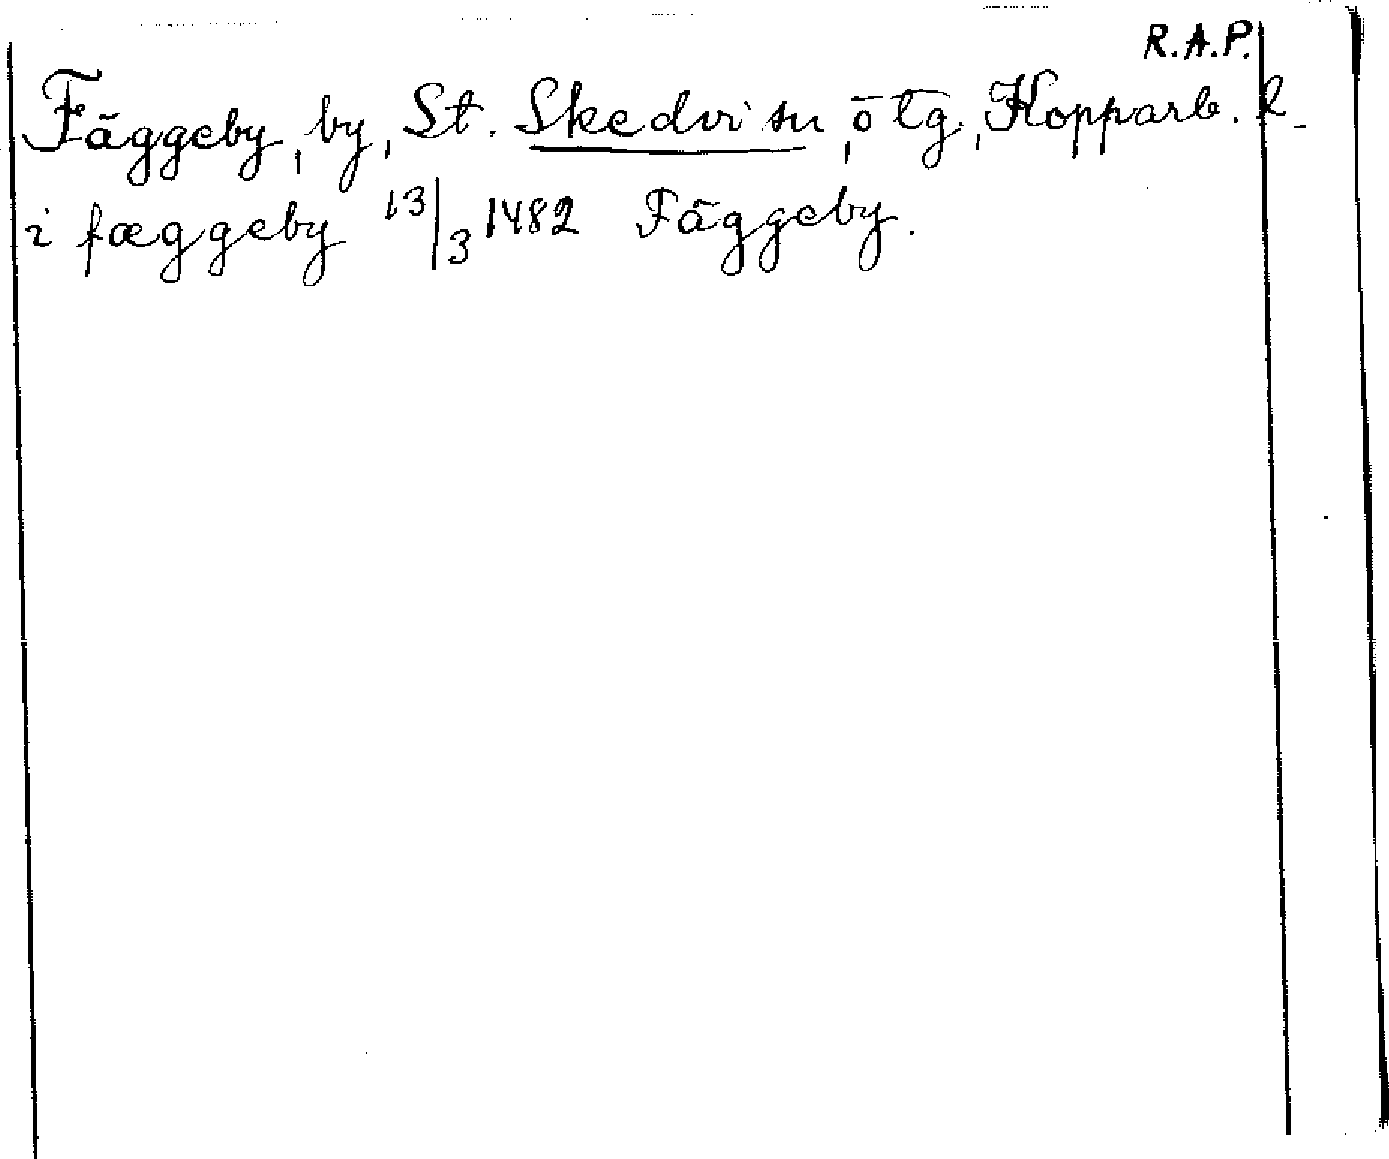 R.A.P.
Fäggeby, by, St. Skedvi sn, ötg., Kopparb. l.
i fæggeby 13/3 1482 Fäggeby.